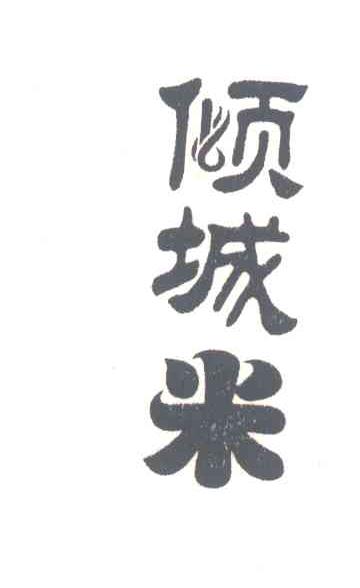 倾城米